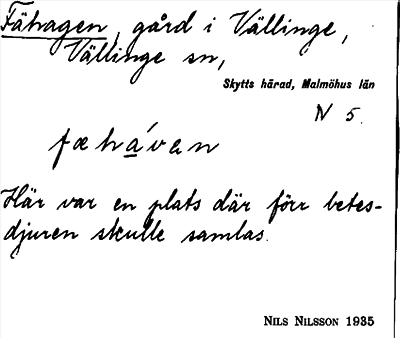 Fähagen, gård i Vällinge,
Vällinge sn,
Skytts härad, Malmöhus län
N 5.
fæhàven
Här var en plats där förr betes-
djuren skulle samlas.
NILS NILSSON 1935